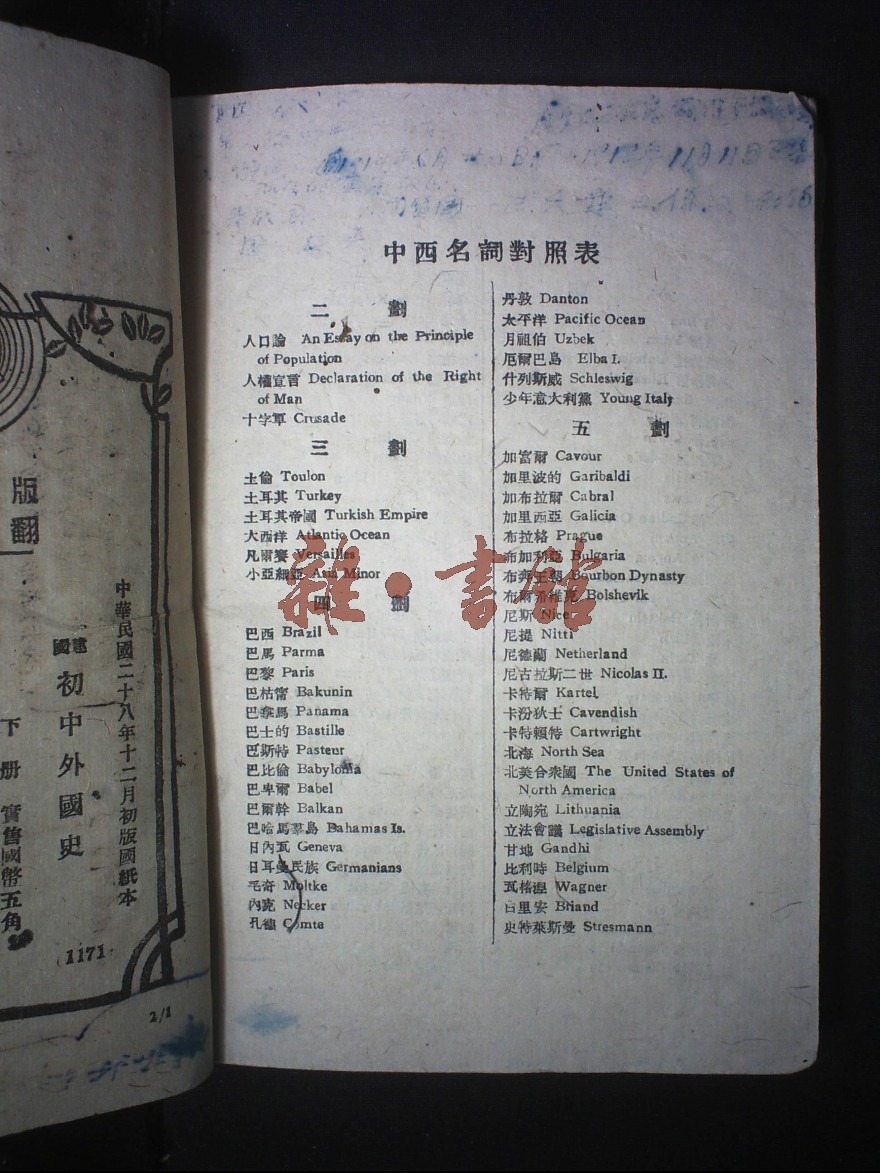 中西名詞對照表
二 劃
人口論 An Essay on the Principle
of Population
人權宣言 Declaration of the Right
of Man
十字軍 Crusade
三 劃
土倫 Toulon
土耳其 Turkey
土耳其帝國 Turkish Empire
大西洋 Atlantic Ocean
凡爾賽 Versailles
小亞細亞 Asia Minor
四 劃
巴西 Brazil
巴馬 Parma
巴黎 Paris
巴枯甯 Bakunin
巴拿馬 Panama
巴士的 Bastille
巴斯特 Pasteur
巴比倫 Babylonia
巴卑爾 Babel
巴爾幹 Balkan
巴哈馬羣島 Bahamas Is.
日內瓦 Geneva
日耳曼民族 Germanians
毛奇 Moltke
內克 Necker
孔德 Comte
丹敦 Danton
太平洋 Pacific Ocean
月祖伯 Uzbek
厄爾巴島 Elba I.
什列斯威 Schleswig
少年意大利黨 Young Italy
五 劃
加富爾 Cavour
加里波的 Garibaldi
加布拉爾 Cabral
加里西亞 Galicia
布拉格 Prague
布加利亞 Bulgaria
布奔王朝 Bourbon Dynasty
布爾希維克 Bolshevik
尼斯 Nice
尼提 Nitti
尼德蘭 Netherland
尼古拉斯二世 Nicolas II.
卡特爾 Kartel
卡汾狄士 Cavendish
卡特賴特 Cartwright
北海 North Sea
北美合衆國 The United States of
North America
立陶宛 Lithuania
立法會議 Legislative Assembly
甘地 Gandhi
比利時 Belgium
瓦格涅 Wagner
白里安 Briand
史特萊斯曼 Stresmann
雜·書館
版翻
中華民國二十八年十二月初版國紙本
建國
初中外國史
下册 實售國幣五角
(1171)
2/1